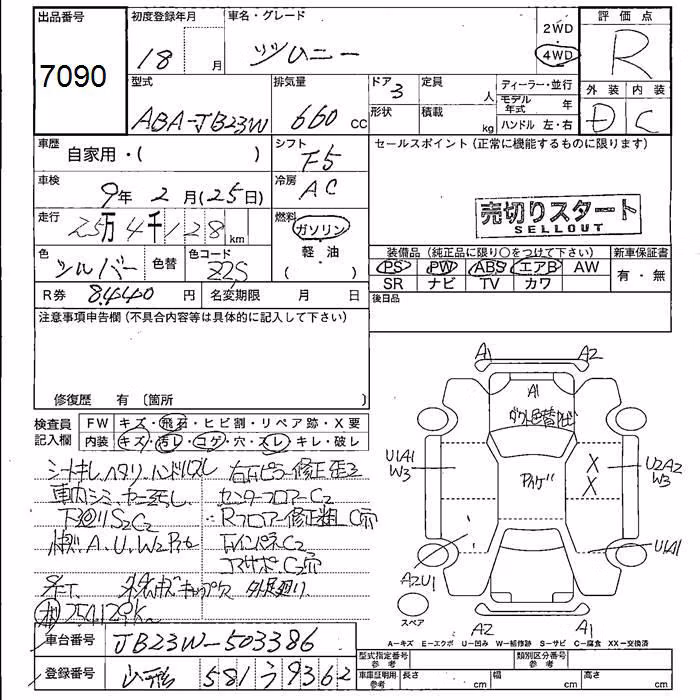 出品番号 初度登録年月 車名・グレード 2WD 評価点
7090 18 月 ジムニー 4WD R
型式 排気量 ドア 3 定員 人 ディーラー・並行 外装 内装
ABA-JB23W 660 cc 形状 積載 kg モデル年式 年 D C
ハンドル 左・右
車歴 自家用・( ) シフト F5 セールスポイント (正常に機能するものに限ります)
車検 9年 2月(25日) 冷房 AC
走行 25万4千128km 燃料 ガソリン 軽・油 ( )
売切りスタート
SELLOUT
色 シルバー 色替 色コード Z2S
装備品 (純正品に限り○をつけて下さい) 新車保証書
PS PW ABS エアB AW 有・無
SR ナビ TV カワ
R券 8,440円 名変期限 月 日 後日品
注意事項申告欄 (不具合内容等は具体的に記入して下さい)
修復歴 有 〔箇所 〕
検査員記入欄 FW キズ・飛石・ヒビ割・リペア跡・X要
内装 キズ・汚レ・コゲ・穴・スレ・キレ・破レ
シートキレ、ヘタリ ハンドルスレ 右Fピラー修正歪ミ
車内シミ、ヤニ汚レ センターフロアーC2
下廻りS2C2 Rフロアー修正粗、C穴
A、U、W2 RインパネC2
キャップ欠 外足廻り
254129K
A1 A2
A1
U1A1 W3 X X U2A2 W3
A2U1 U1A1
スペア A2 A1
A-キズ E-エクボ U-凹み W-補修跡 S-サビ C-腐食 XX-交換済
車台番号 JB23W-503386
型式指定番号 参考 類別区分番号 参考
登録番号 山形 581 う 9362
車庫証明用 参考 長さ cm 幅 cm 高さ cm